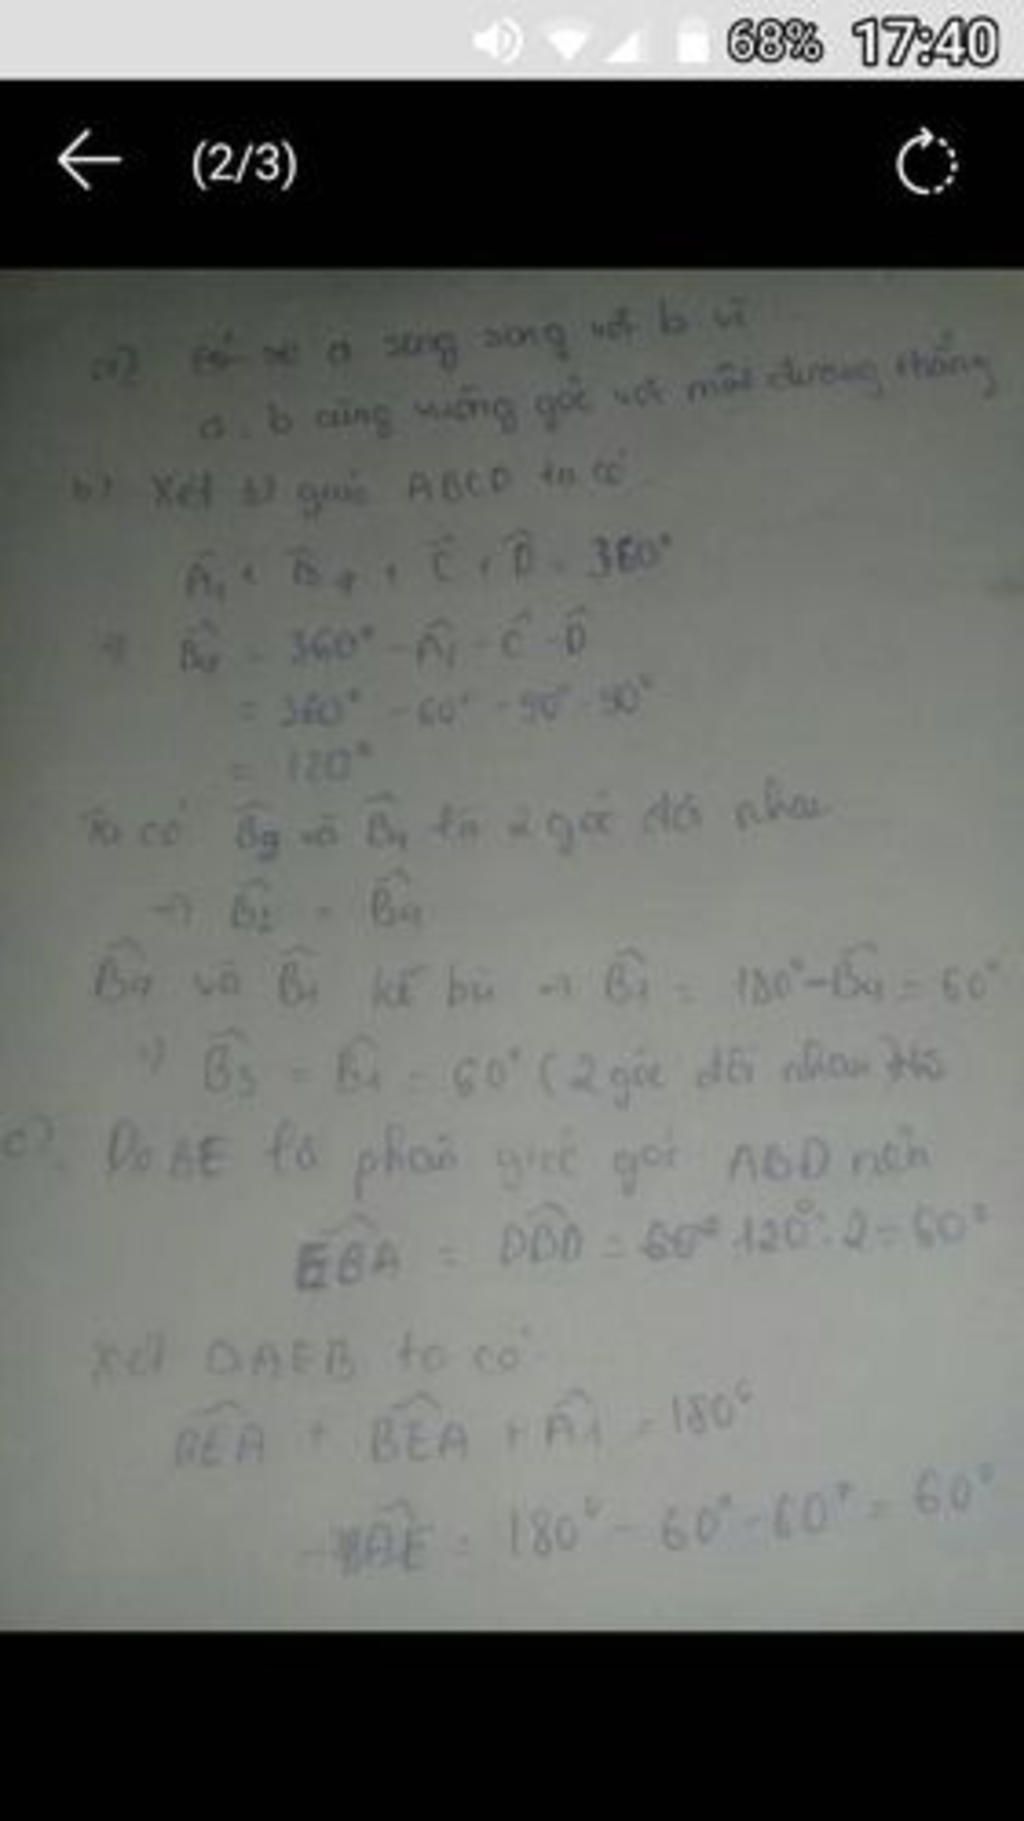 68% 17:40
(2/3)
a) song song với b vì
a, b cùng vuông góc với một đường thẳng
b) Xét tứ giác ABCD ta có
Â₁ + B̂₄ + Ĉ + D̂ = 360°
=> B̂₄ = 360° - Â₁ - Ĉ - D̂
= 360° - 60° - 90° - 90°
= 120°
Ta có và là 2 góc đối nhau
=> B̂₂ = B̂₄
B̂₄ và B̂₁ kề bù => B̂₁ = 180° - B̂₄ = 60°
=> B̂₃ = B̂₁ = 60° (2 góc đối nhau
c) Do là phân giác góc ABD nên
EBA = = 120° : 2 = 60°
Xét ΔAEB ta có
+ BEA + Â₁ = 180°
= 180° - 60° - 60° = 60°